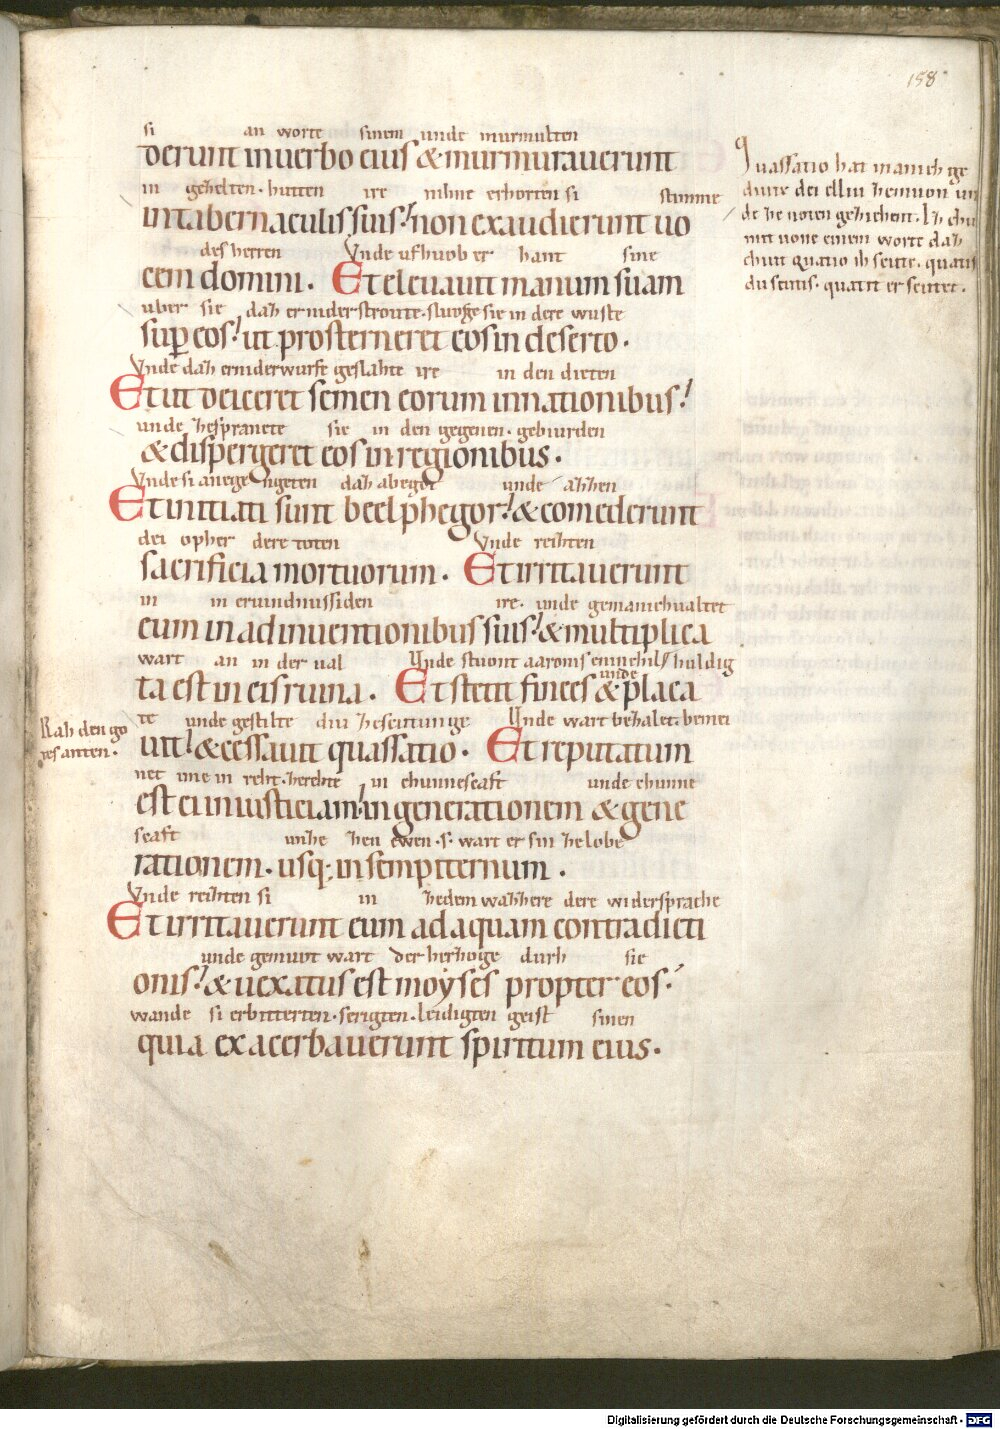 158
si an worte sinem unde murmulten
derunt in uerbo eius & murmurauerunt
in gezelten. hutten ire nihne erhorten si stimme
in tabernaculis suis! non exaudierunt uo
des herren Vnde ufhuob er hant sine
cem domini. Et eleuauit manum suam
uber sie daz er niderstroute. sluoge sie in dere wuste
sup eos! ut prosterneret eos in deserto.
Vnde daz er niderwurfe geslahte ire in den dieten
Et ut deiceret semen eorum in nationibus!
unde zespranete sie in den gegenen. gebiurden
& dispergeret eos in regionibus.
Vnde si anege ngeten daz abegot unde azzen
Et initiati sunt beelphegor! & comederunt
dei opher dere toten Vnde reizten
sacrificia mortuorum. Et irritauerunt
in in eruindnussiden ire. unde gemanichualtet
eum in adinuentionibus suis! & multiplica
wart an in der ual Unde stuont aaronis huldig
unde
ta est in eis ruina. Et stetit finees & placa
te unde gestilte diu zescutunge Unde wart bezalet. bemei
uit! & cessauit quassatio. Et reputatum
net ime in reht. herehte in chunnescaft unde chunne
est ei in iusticiam! in generationem & gene
scaft unze zen ewen. s. wart er sin ze lobe
rationem. usq; in sempiternum.
Vnde reizten si in zedem wazzere dere widersprache
Et irritauerunt eum ad aquam contradicti
unde gemuot wart der herzoge durh sie
onis! & uexatus est moyses propter eos!
wande si erbitterten. serigten. leidigten geist sinen
quia exacerbauerunt spiritum eius.
Quassatio hat manich ge
diute dei elliu hennon un
de ze noten geziehent. Ih chu
mit uone einem worte daz
chuit quatio ih scute. quatis
du scutis. quatit er scutet.
Rah den go
tes anten.
Digitalisierung gefördert durch die Deutsche Forschungsgemeinschaft - DFG